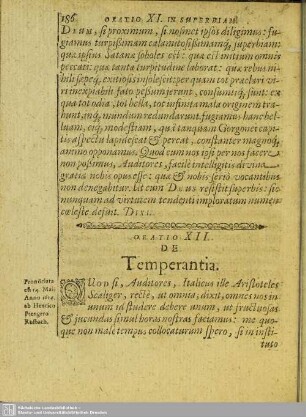 186 ORATIO XI. IN SUPERBIAM
Deum, si proximum, si nosmet ipsos diligimus: fu-
giamus turpissimam calamitosissimamq; superbiam:
quæ ipsius Satanæ soboles est: quæ est initium omnis
peccati: quæ tanta turpitudine laborat: quæ rebus in-
inexpiabili fato pessum jerunt, consumtiq; sunt: ex
qua tot odia, tot bella, tot infinita mala originem tra-
hunt,
mundum redundarunt: fugiamus hanc bel-
luam, ejq; modestiam, qua tanquam Gorgonei capi-
tis aspectu lapidescat & pereat, constanter magnoq;
animo opponamus. Quod cum nos ipsi per nos facere
non possimus, Auditores, facile intelligitis divina
gratia nobis opus esse: quæ nobis serio vocantibus
non denegabitur. Ut enim Deus resistit superbis: sic
nunquam ad virtutem tendenti imploratum numen
cœleste desint. Dixi.
ORATIO XII.
DE
Temperantia.
Pronunciata
est 14. Maii
Anno
ab Henrico
Rostoch.
Quod si, Auditores, Italicus ille Aristoteles
Scaliger, rectè, ut omnia, dixit, omnes nos in
unum id studere debere unum, ut fructuosas
& jucundas simul horas nostras faciamus: me quo-
que non male tempus collocaturum spero, si in insti-
tuto
Sächsische Landesbibliothek -
Staats- und Universitätsbibliothek Dresden